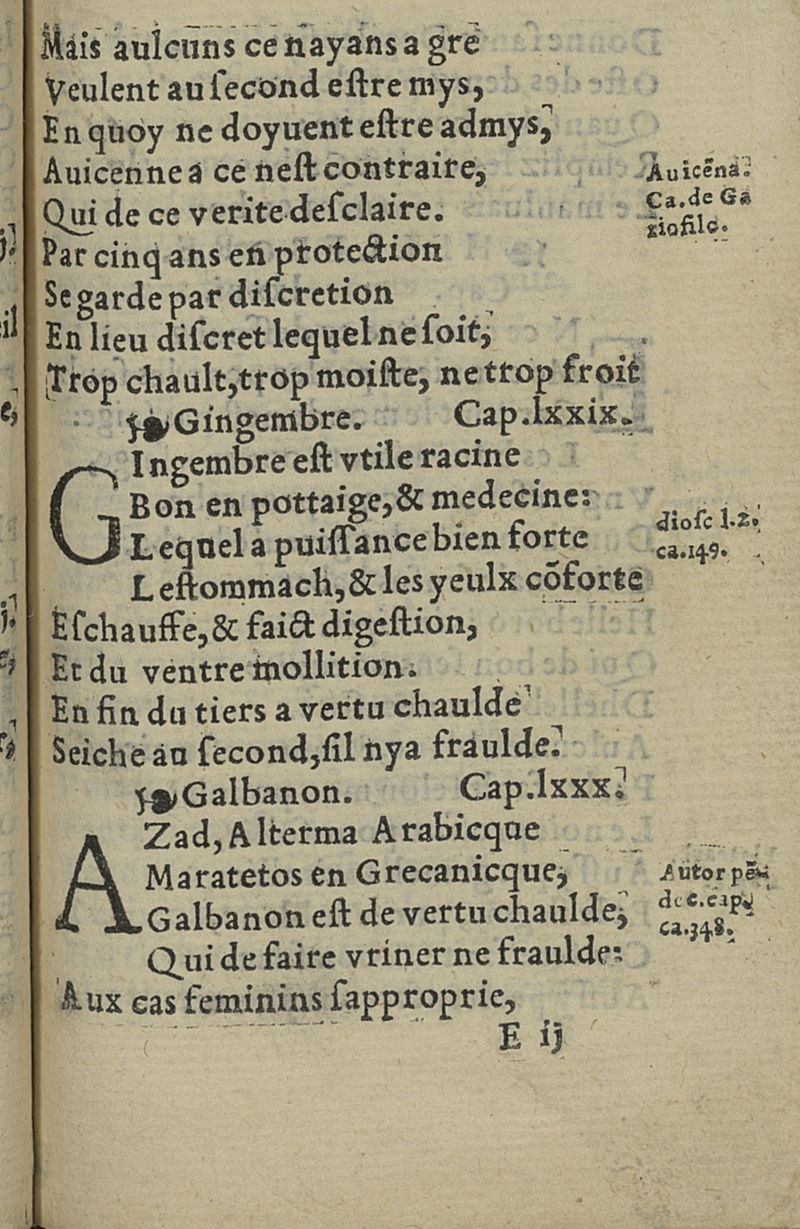 Mais aulcuns ce nayans a gre
Veulent au ſecond eſtre mys,
En quoy ne doyuent eſtre admys,
Auicenne a ce neſt contraire,
Qui de ce verite deſclaire.
Par cinq ans en protection
Se garde par diſcretion
En lieu diſcret lequel ne ſoit,
Trop chault, trop moiſte, ne trop froit
Auicēna.
Ca. de Ga
riofilo.
Gingembre. Cap. lxxix.
GIngembre eſt vtile racine
Bon en pottaige, & medecine:
Lequel a puiſſance bien forte
Leſtommach, & les yeulx cōforte
Eſchauffe, & faict digeſtion,
Et du ventre mollition.
En fin du tiers a vertu chaulde
Seiche au ſecond, ſil nya fraulde.
dioſc l.2.
ca.149.
Galbanon. Cap. lxxx.
AZad, Alterma Arabicque
Maratetos en Grecanicque,
Galbanon eſt de vertu chaulde,
Qui de faire vriner ne fraulde:
Aux cas feminins ſapproprie,
Autor
ca.348.
E ij